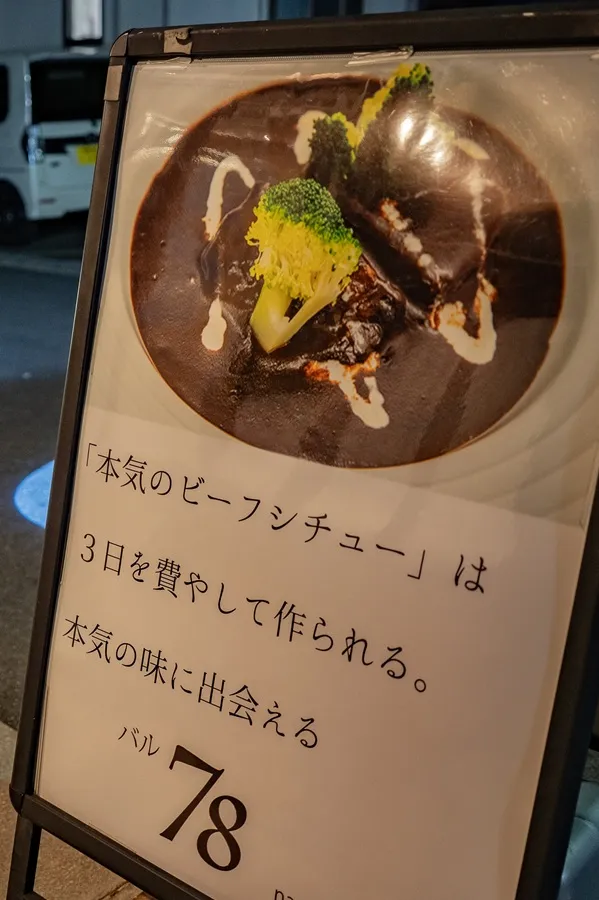 「本気のビーフシチュー」は
3日を費やして作られる。
本気の味に出会える
バル
78